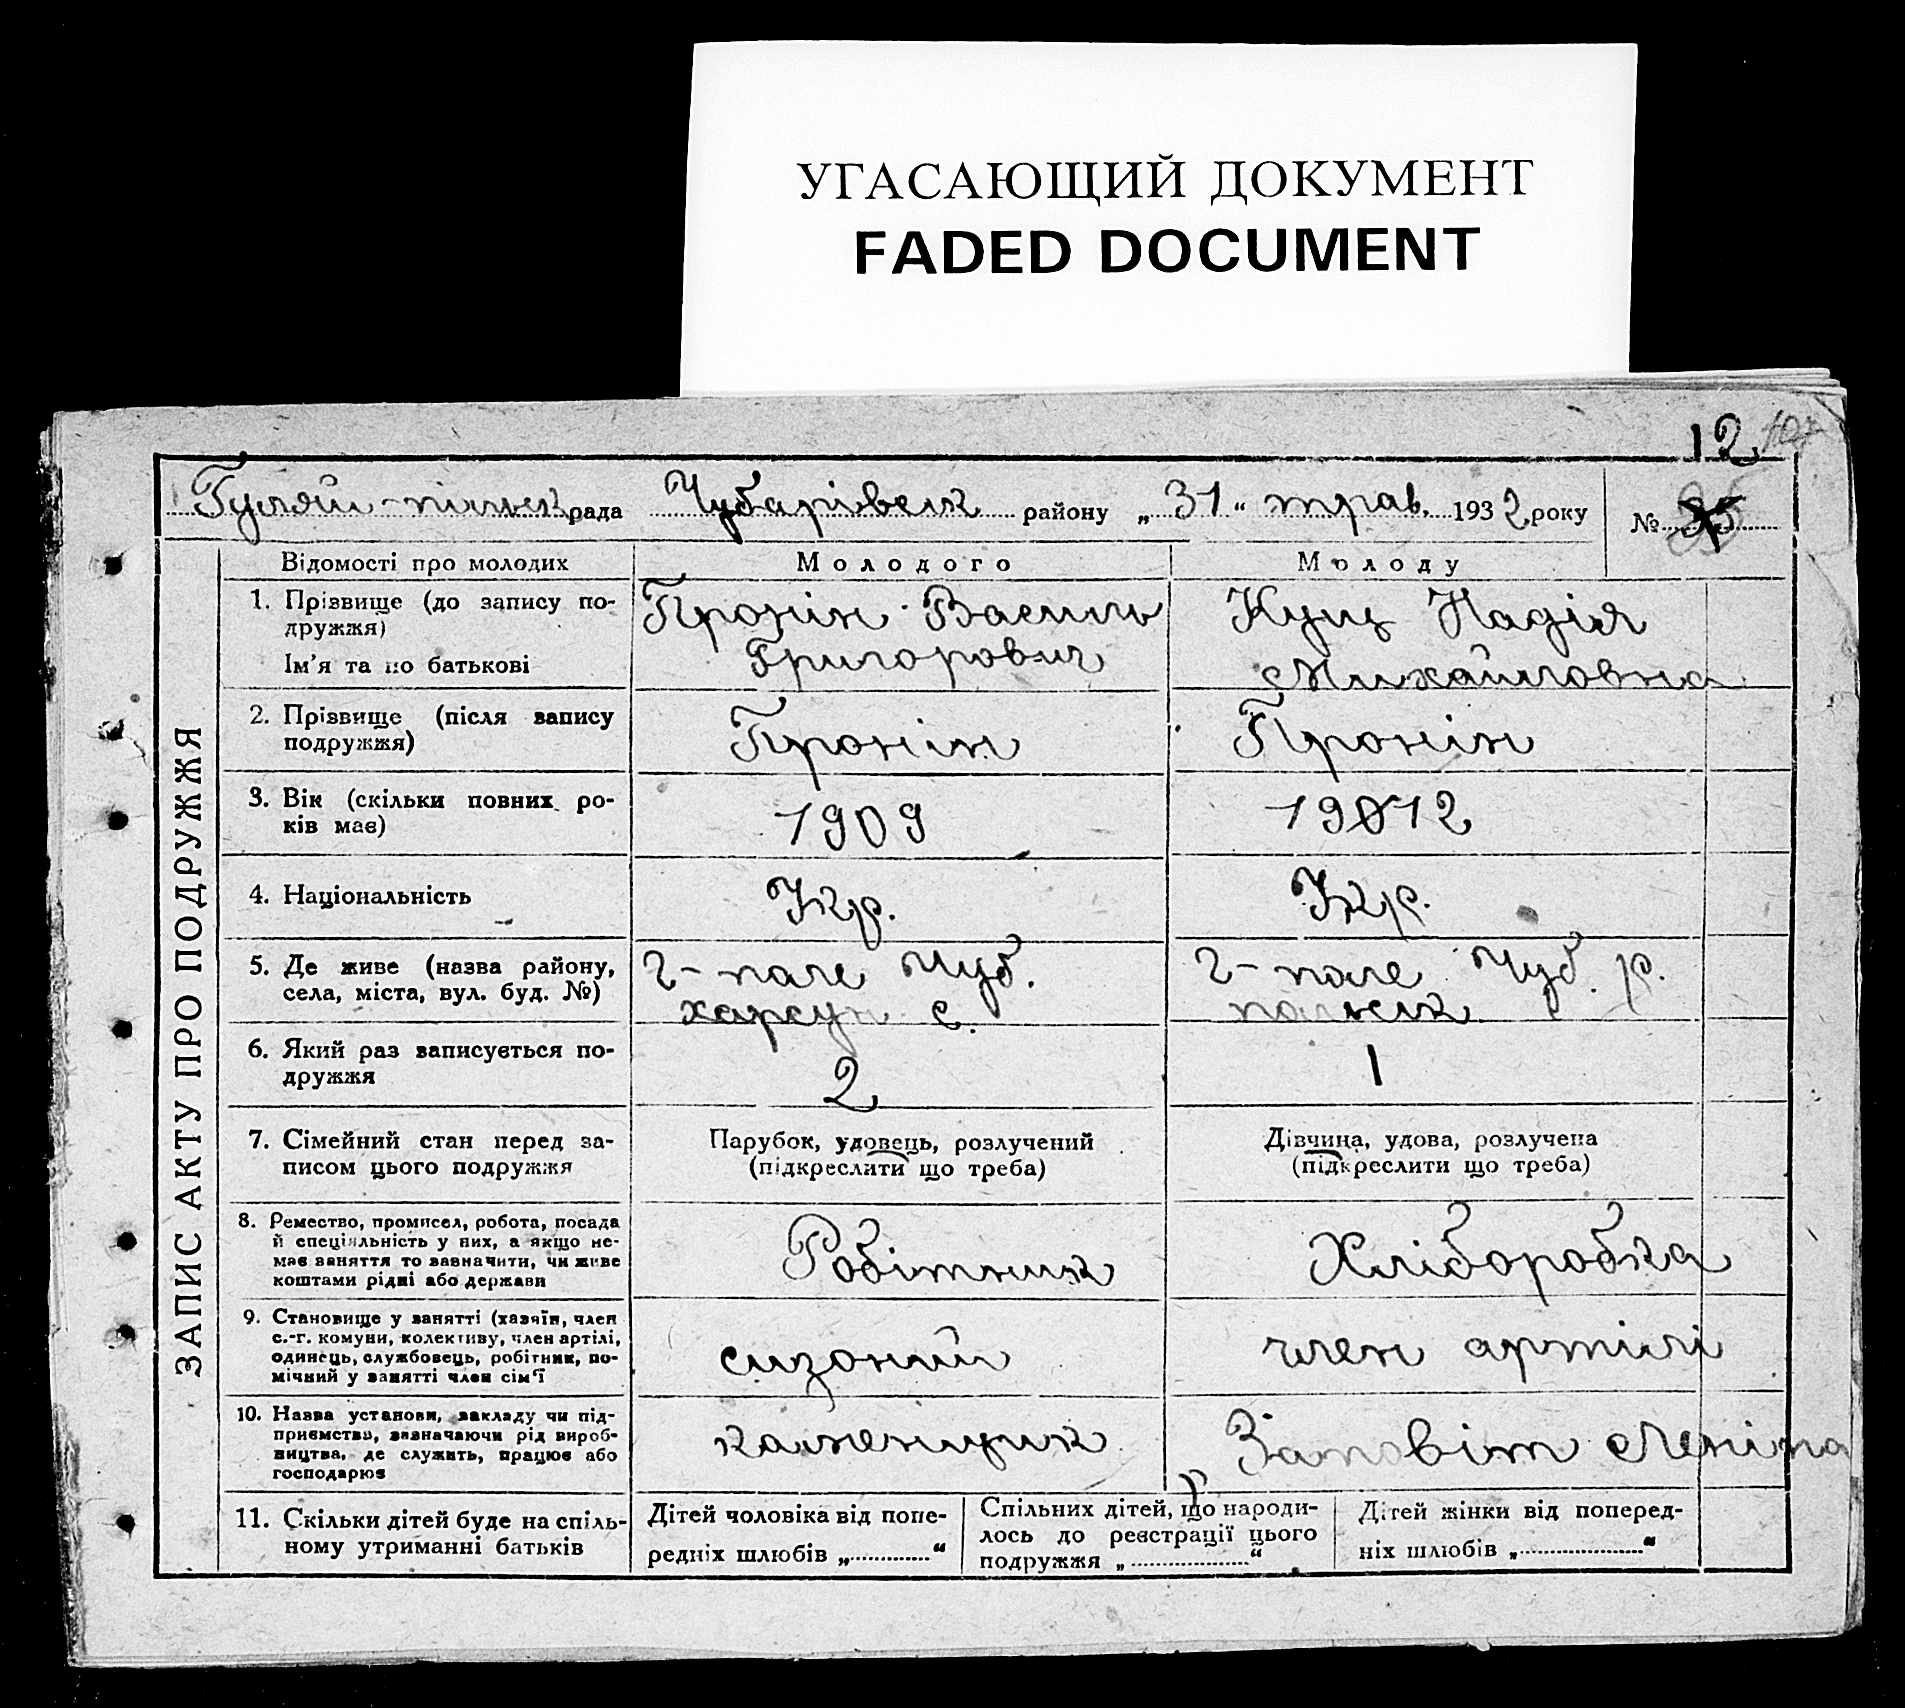 УГАСАЮЩИЙ ДОКУМЕНТ
FADED DOCUMENT
12
Гуляй-пільськ рада Чубарівськ району „31“ трав. 1932 року №
ЗАПИС АКТУ ПРО ПОДРУЖЖЯ
Відомості про молодих Молодого Молоду
1. Прізвище (до запису по-
дружжя)
Ім'я та по батькові
Пронін Василь
Григорович
Куць Надія
Михайловна
2. Прізвище (після запису
подружжя)
Пронін
Пронін
3. Вік (скільки повних ро-
ків має)
1909
1912
4. Національність
Укр.
Укр.
5. Де живе (назва району,
села, міста, вул. буд. №)
Г-поле Чуб.
херсун с.
Г-поле Чуб. р.
польск
6. Який раз записується по-
дружжя
2
1
7. Сімейний стан перед за-
писом цього подружжя
Парубок, удовець, розлучений
(підкреслити що треба)
Дівчина, удова, розлучена
(підкреслити що треба)
8. Ремество, промисел, робота, посада
й спеціяльність у них, а якщо не-
має заняття то зазначити, чи живе
коштами рідні або держави
Робітник
Хліборобка
9. Становище у занятті (хазяїн, член
с.-г. комуни, колективу, член артілі,
одинець, службовець, робітник, по-
мічний у занятті член сім'ї
сизоний
член артілі
10. Назва установи, закладу чи під-
приємства, зазначаючи рід вироб-
ництва, де служить, працює або
господарює
каменщик
Заповіт Леніна
11. Скільки дітей буде на спіль-
ному утриманні батьків
Дітей чоловіка від попе-
редніх шлюбів „ “
Спільних дітей, що народи-
лось до реєстрації цього
подружжя „ “
Дітей жінки від поперед-
ніх шлюбів „ “